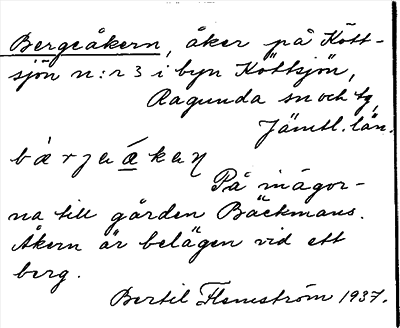 Bergeåkern, åker på Kött-
sjön n:r 3 i byn Köttsjön,
Ragunda sn och tg,
Jämtl. län.
På inägor-
na till gården Bäckmans.
Åkern är belägen vid ett
berg.
Bertil Flemström 1937.